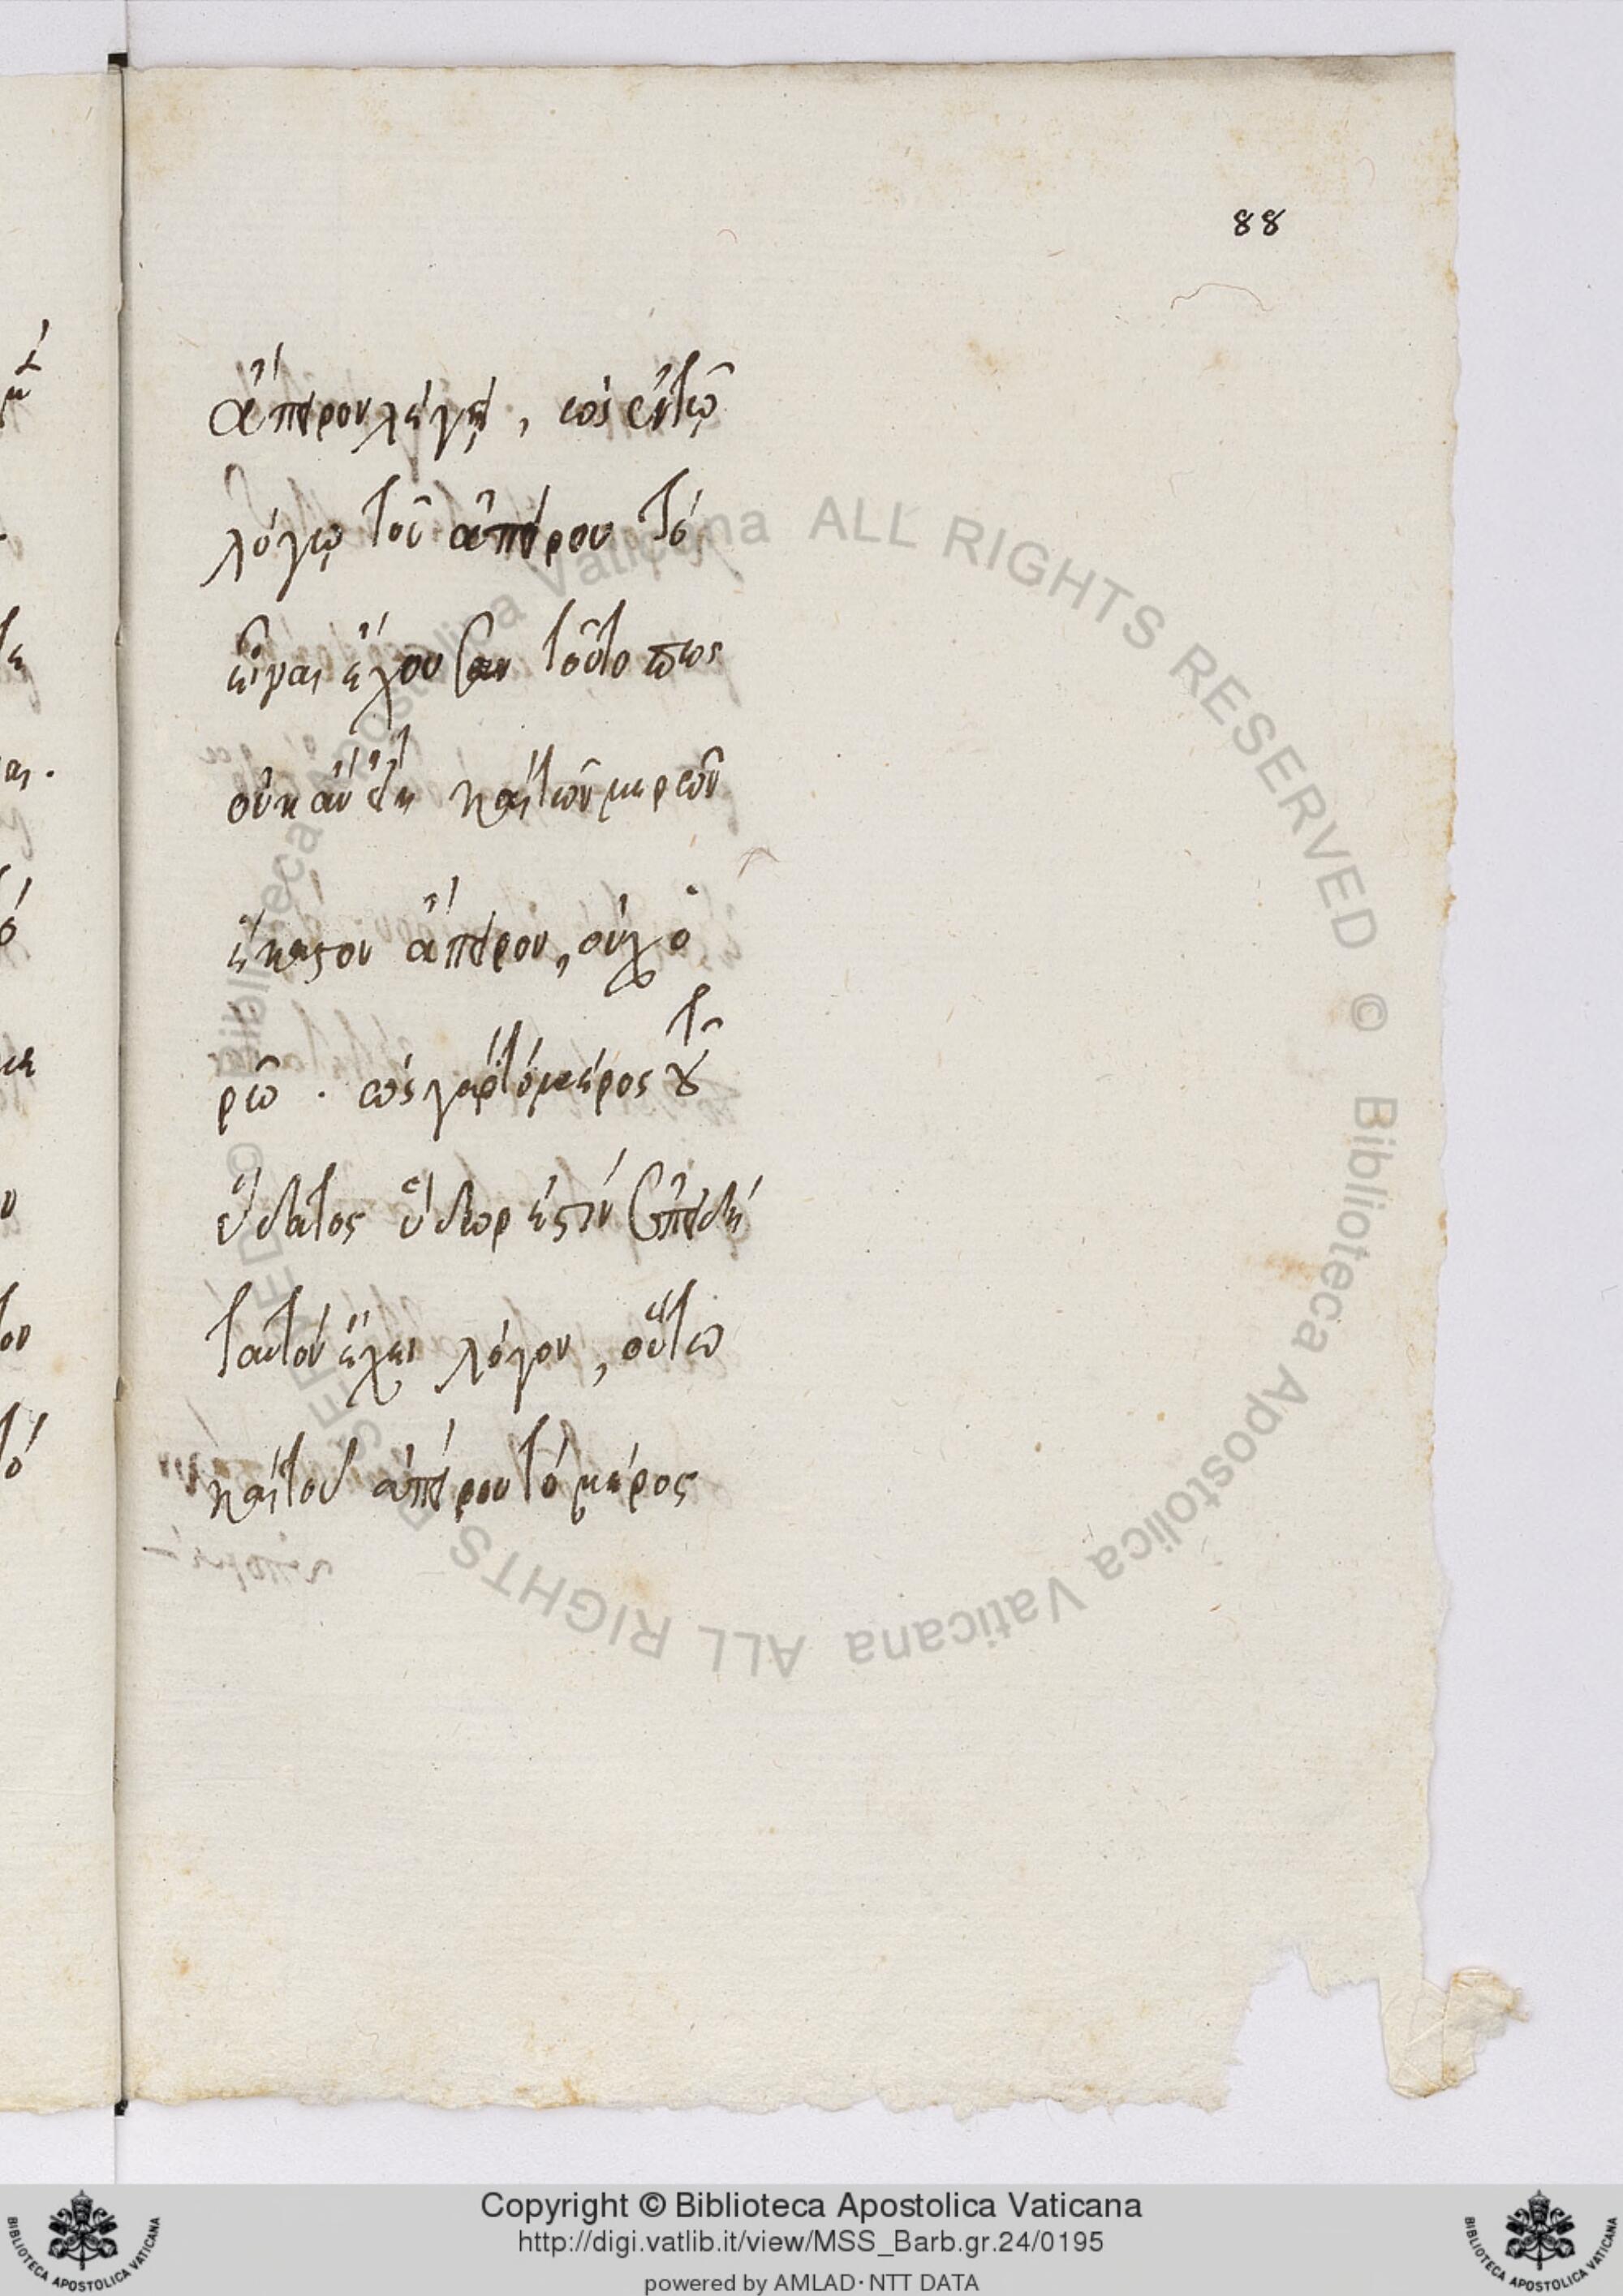 88
ἄπειρον λέγει, ὡς ἐν τῷ
λόγῳ τοῦ ἀπείρου τὸ
εἶναι ἔχουσαν τοῦτο πῶς
οὐκ ἂν εἴη καὶ τῶν μερῶν
ἕκαστον ἄπειρον, οὐχ ὁ
ρῶ. ὡς γὰρ τὸ μέρος τοῦ
ὕδατος ὕδωρ ἐστὶν ἐπειδὴ
ταυτὸν ἔχει λόγον, οὕτω
καὶ τοῦ ἀπείρου τὸ μέρος
© Biblioteca Apostolica Vaticana ALL RIGHTS RESERVED
© Biblioteca Apostolica Vaticana ALL RIGHTS RESERVED
Copyright © Biblioteca Apostolica Vaticana
http://digi.vatlib.it/view/MSS_Barb.gr.24/0195
powered by AMLAD·NTT DATA
BIBLIOTECA APOSTOLICA VATICANA
BIBLIOTECA APOSTOLICA VATICANA